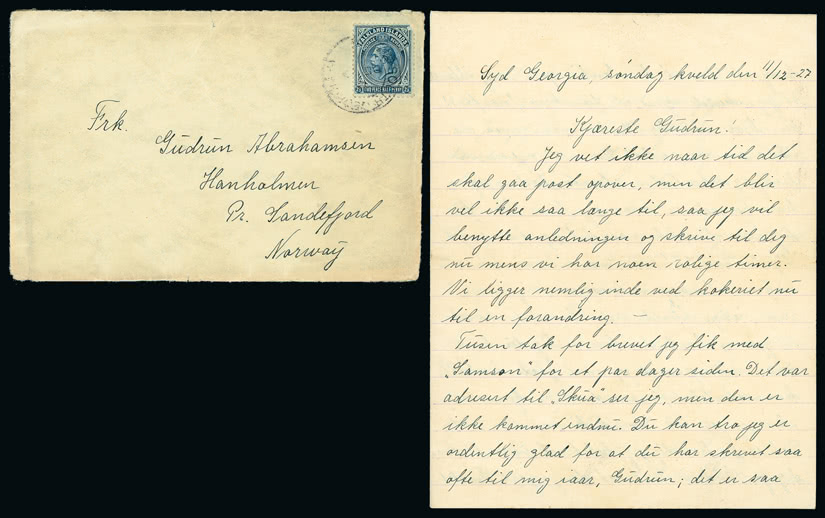 FALKLAND ISLANDS
TWO PENCE HALFPENNY
Frk.
Gudrun Abrahamsen
Hanholmen
Pr. Sandefjord
Norway
Syd Georgia, søndag kveld den 11/12-27
Kjæreste Gudrun!
Jeg vet ikke naar tid det
skal gaa post opover, men det blir
vel ikke saa længe til, saa jeg vil
benytte anledningen og skrive til dig
nu mens vi har noen rolige timer.
Vi ligger nemlig inde ved kokeriet nu
til en forandring. —
Tusen tak for brevet jeg fik med
„Samson" for et par dager siden. Det var
adresert til „Skua" ser jeg, men den er
ikke kommet indnu. Du kan tro jeg er
ordentlig glad for at du har skrevet saa
ofte til mig iaar, Gudrun; det er saa